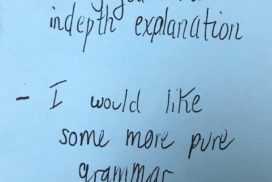 indepth explanation
- I would like
some more pure
grammar